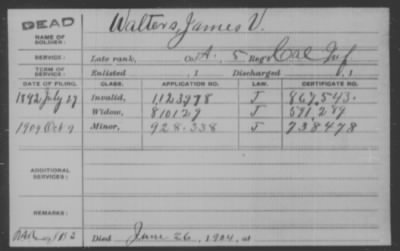 DEAD
NAME OF SOLDIER: Walters, James V.
SERVICE: Late rank, Co. A. 5 Reg't Cal Inf
TERM OF SERVICE: Enlisted , 1 Discharged , 1
DATE OF FILING. CLASS. APPLICATION NO. LAW. CERTIFICATE NO.
1892 July 29 Invalid, 1,123,978 J 867,543.
Widow, 810129 J 591.289
1909 Oct 9 Minor, 928.338 J 738478
ADDITIONAL SERVICES:
REMARKS:
Died June 26, 1904, at